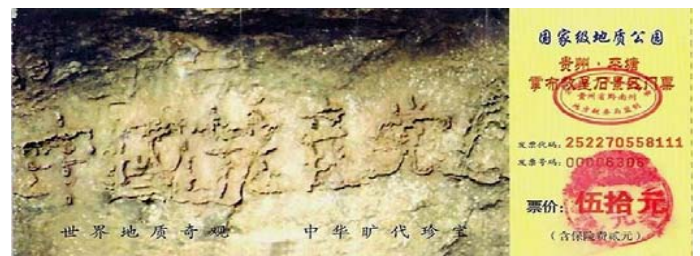 中國共產党亡
世界地质奇观 中华旷代珍宝
国家级地质公园
贵州·平塘
掌布救星石景区门票
贵州省黔南州
发票代码：252270558111
发票号码：00006306
票价：伍拾元
（含保险费贰元）